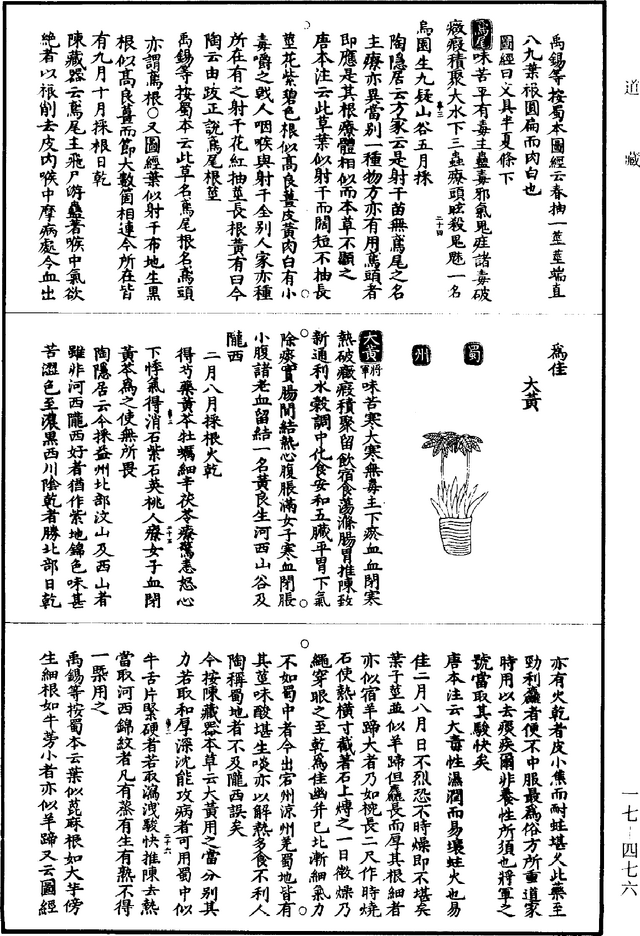 道藏
禹錫等按蜀本圖經云春抽一莖莖端直
八九葉根圓扁而肉白也
圖經曰文具半夏條下
鳶尾味苦平有毒主蠱毒邪氣鬼疰諸毒破
癥瘕積聚大水下三蟲療頭眩殺鬼魅一名
烏園生九疑山谷五月採
陶隱居云方家云是射干苗無鳶尾之名
主療亦異當別一種物方亦有用鳶頭者
即應是其根療體相似而本草不顯之
唐本注云此草葉似射干而闊短不抽長
莖花紫碧色根似高良薑皮黃肉白有小
毒嚼之戟人咽喉與射干全別人家亦種
所在有之射干花紅抽莖長根黃有臼今
陶云由跋正說鳶尾根莖
禹錫等按蜀本云此草名鳶尾根名鳶頭
亦謂鳶根○又圖經葉似射干布地生黑
根似高良薑而節大數箇相連今所在皆
有九月十月採根日乾
陳藏器云鳶尾主飛尸游蠱著喉中氣欲
絶者以根削去皮内喉中摩病處令血出
爲佳
大黃
蜀
州
大黃將軍味苦寒大寒無毒主下瘀血血閉寒
熱破癥瘕積聚留飲宿食蕩滌腸胃推陳致
新通利水穀調中化食安和五臟平胃下氣
除痰實腸間結熱心腹脹滿女子寒血閉脹
小腹諸老血留結一名黃良生河西山谷及
隴西
二月八月採根火乾
得芍藥黃芩牡蠣細辛茯苓療驚恚怒心
下悸氣得消石紫石英桃人療女子血閉
黃芩爲之使無所畏
陶隱居云今採益州北部汶山及西山者
雖非河西隴西好者猶作紫地錦色味甚
苦澀色至濃黑西川陰乾者勝北部日乾
亦有火乾者皮小焦而耐蛀堪久此藥至
勁利麤者便不中服最爲俗方所重道家
時用以去痰疾爾非養性所須也將軍之
號當取其駿快矣
唐本注云大毒性濕潤而易壞蛀火也易
佳二月八月日不烈恐不時燥即不堪矣
葉子莖並似羊蹄但麤長而厚其根細者
亦似宿羊蹄大者乃如椀長二尺作時燒
石使熱橫寸截著石上煿之一日微燥乃
繩穿眼之至乾爲佳幽幷已北漸細氣力
不如蜀中者今出宕州涼州羌蜀地皆有
其莖味酸堪生啖亦以解熱多食不利人
陶稱蜀地者不及隴西誤矣
今按陳藏器本草云大黃用之當分別其
力若取和厚深沈能攻病者可用蜀中似
牛舌片緊硬者若取瀉洩駿快推陳去熱
當取河西錦紋者凡有蒸有生有熟不得
一槩用之
禹錫等按蜀本云葉似蓖麻根如大芋傍
生細根如牛蒡小者亦似羊蹄又云圖經
一七-四七六